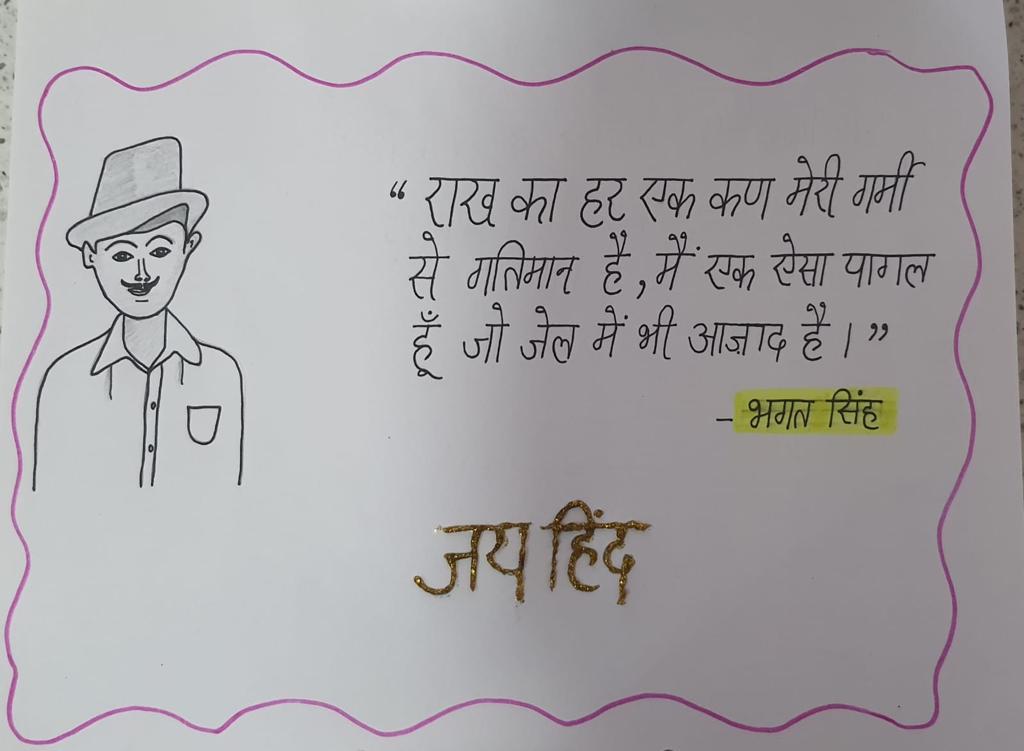 “ राख का हर एक कण मेरी गर्मी
से गतिमान है, मैं एक ऐसा पागल
हूँ जो जेल में भी आज़ाद है। ”
- भगत सिंह
जय हिंद